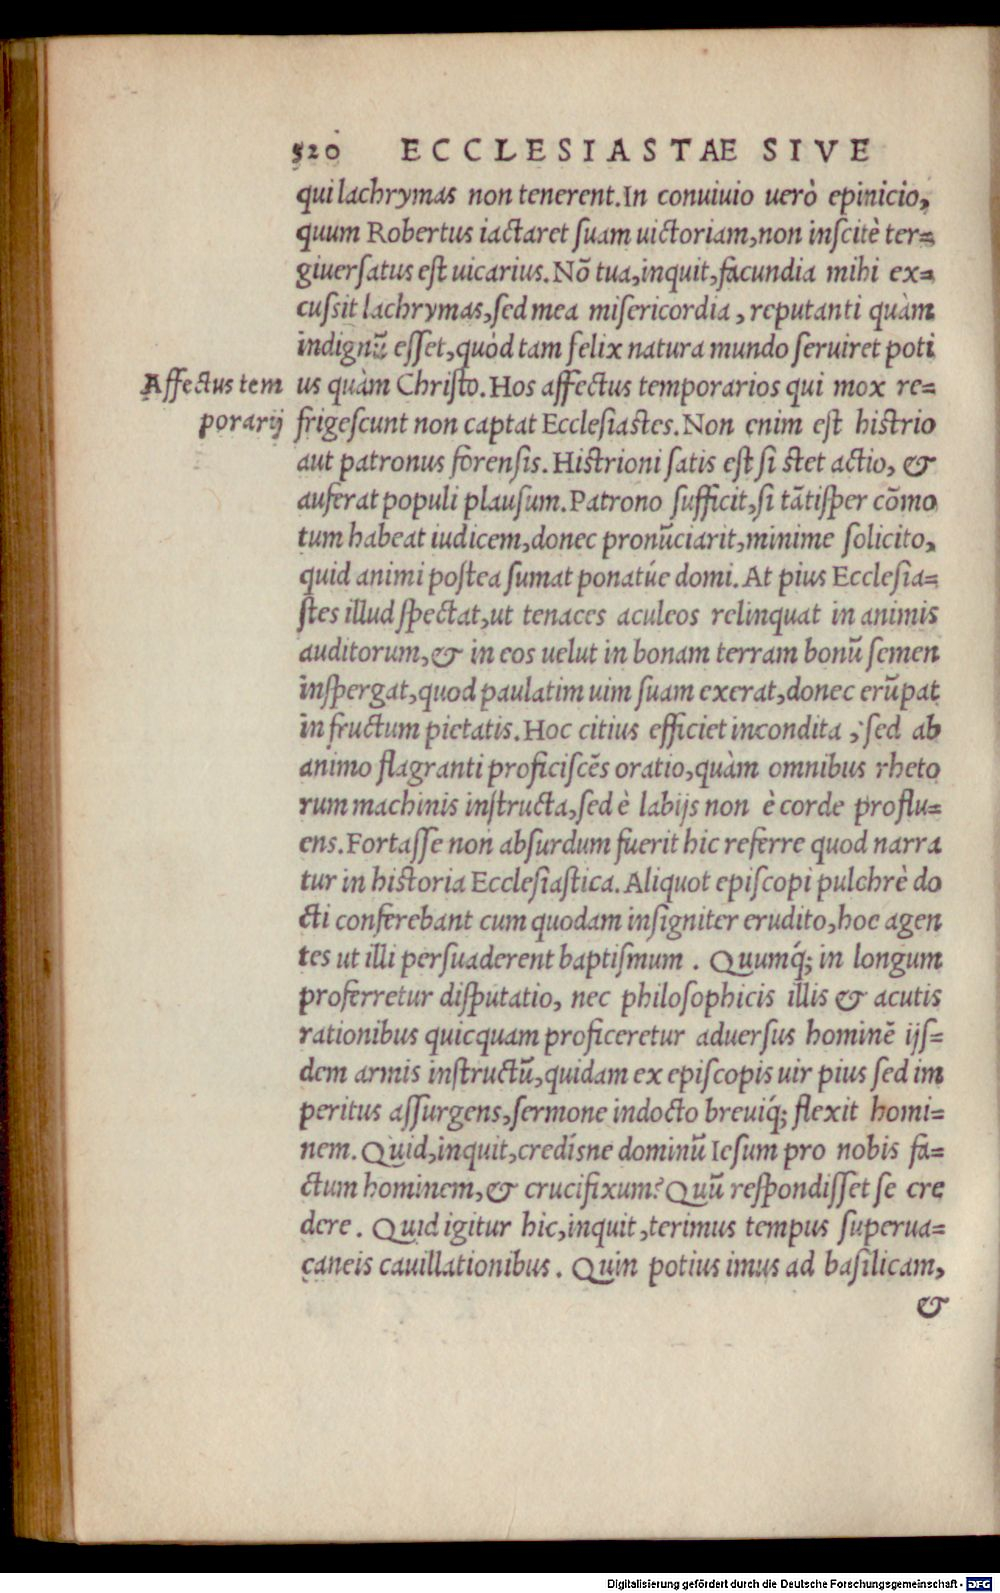 520 ECCLESIASTAE SIVE
qui lachrymas non tenerent. In conuiuio uerò epinicio,
quum Robertus iactaret suam uictoriam, non inscitè ter=
giuersatus est uicarius. Nõ tua, inquit, facundia mihi ex=
cussit lachrymas, sed mea misericordia, reputanti quàm
indignũ esset, quòd tam felix natura mundo seruiret poti
Affectus tem
porarij
us quàm Christo. Hos affectus temporarios qui mox re=
frigescunt non captat Ecclesiastes. Non enim est histrio
aut patronus forensis. Histrioni satis est si stet actio, &
auferat populi plausum. Patrono sufficit, si tãtisper cõmo
tum habeat iudicem, donec pronũciarit, minime solicito,
quid animi postea sumat ponatúe domi. At pius Ecclesia=
stes illud spectat, ut tenaces aculeos relinquat in animis
auditorum, & in eos uelut in bonam terram bonũ semen
inspergat, quod paulatim uim suam exerat, donec erũpat
in fructum pietatis. Hoc citius efficiet incondita, sed ab
animo flagranti proficiscẽs oratio, quàm omnibus rheto
rum machinis instructa, sed è labijs non è corde proflu=
ens. Fortasse non absurdum fuerit hic referre quod narra
tur in historia Ecclesiastica. Aliquot episcopi pulchrè do
cti conferebant cum quodam insigniter erudito, hoc agen
tes ut illi persuaderent baptismum. Quumq́; in longum
proferretur disputatio, nec philosophicis illis & acutis
rationibus quicquam proficeretur aduersus hominẽ ijs=
dem armis instructũ, quidam ex episcopis uir pius sed im
peritus assurgens, sermone indocto breuiq́; flexit homi=
nem. Quid, inquit, credísne dominũ Iesum pro nobis fa=
ctum hominem, & crucifixum? Quũ respondisset se cre
dere. Quid igitur hic, inquit, terimus tempus superua=
caneis cauillationibus. Quin potius imus ad basilicam,
&
Digitalisierung gefördert durch die Deutsche Forschungsgemeinschaft - DFG